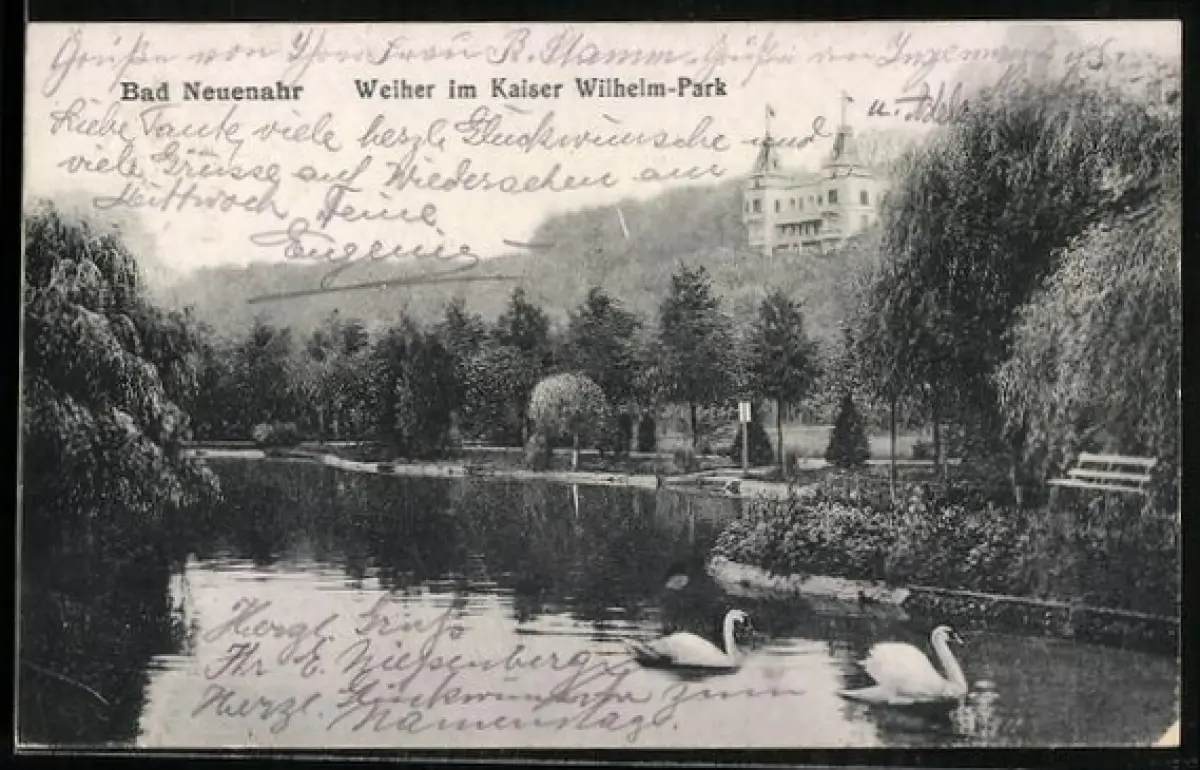 Grüße von Ihrer Frau B. Stamm. Grüße von
u. Adel
Bad Neuenahr Weiher im Kaiser Wilhelm-Park
Liebe Tante, viele herzl. Glückwünsche und
viele Grüsse auf Wiedersehen am
Mittwoch Deine
Eugenie
Herzl. Gruß
Ihr E. Niessenberg
Herzl. Glückwünsche zum
Namenstage.